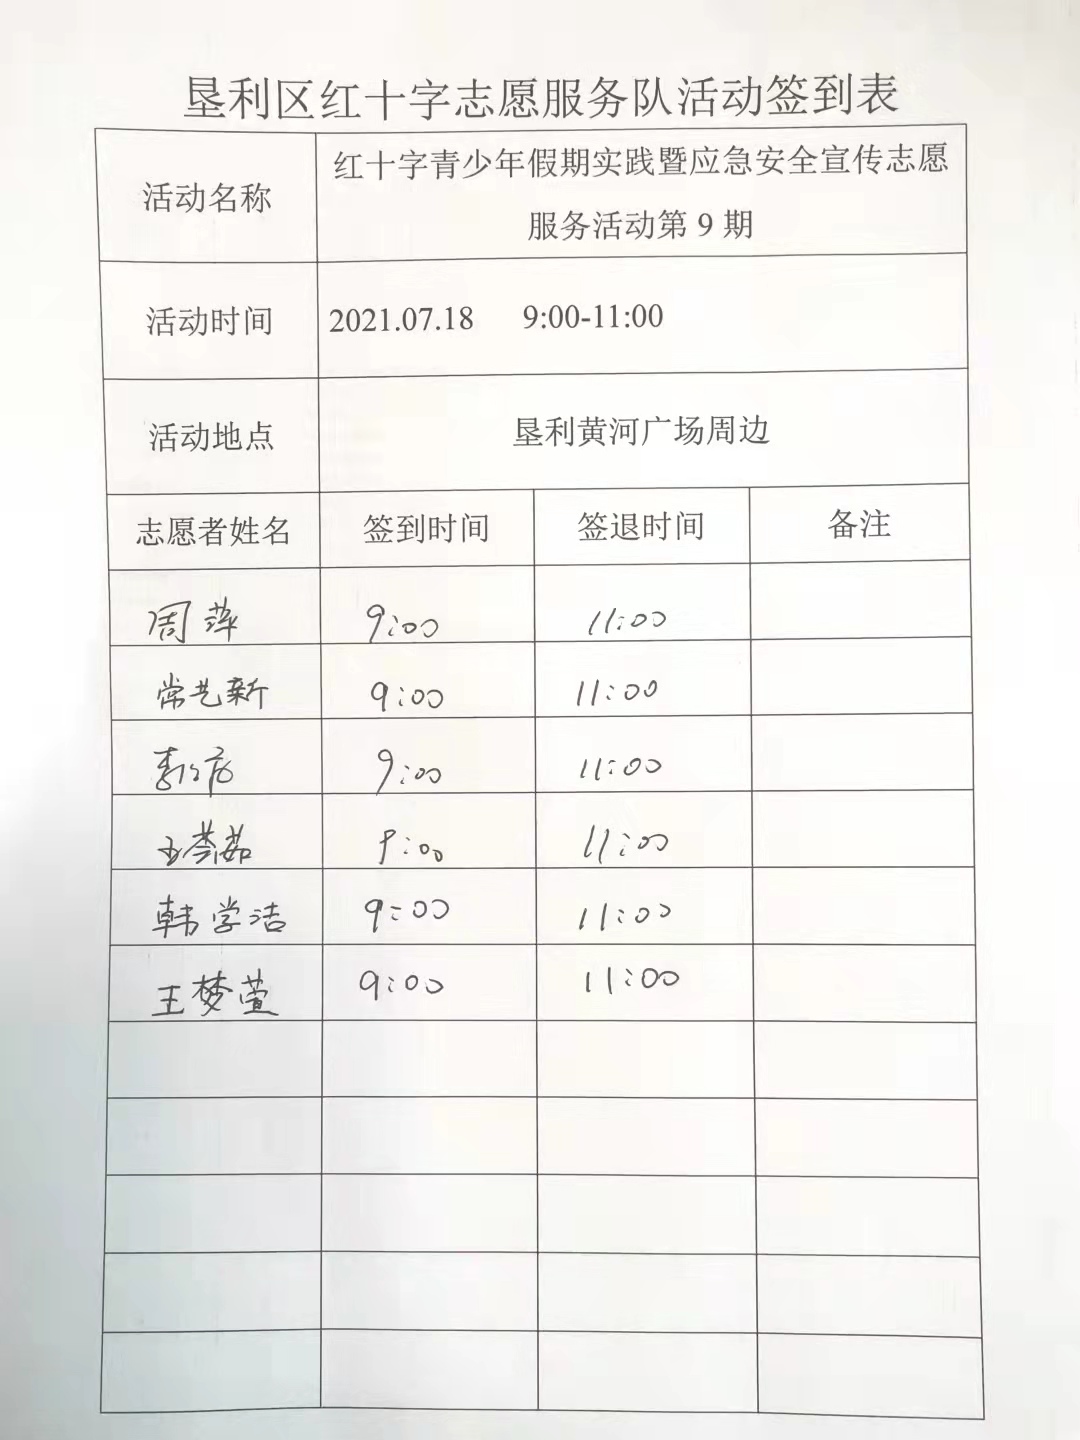 垦利区红十字志愿服务队活动签到表
活动名称 红十字青少年假期实践暨应急安全宣传志愿
服务活动第 9 期
活动时间 2021.07.18 9:00-11:00
活动地点 垦利黄河广场周边
志愿者姓名 签到时间 签退时间 备注
周萍 9:00 11:00
常艺新 9:00 11:00
9:00 11:00
王 茹 9:00 11:00
韩学洁 9:00 11:00
王梦萱 9:00 11:00